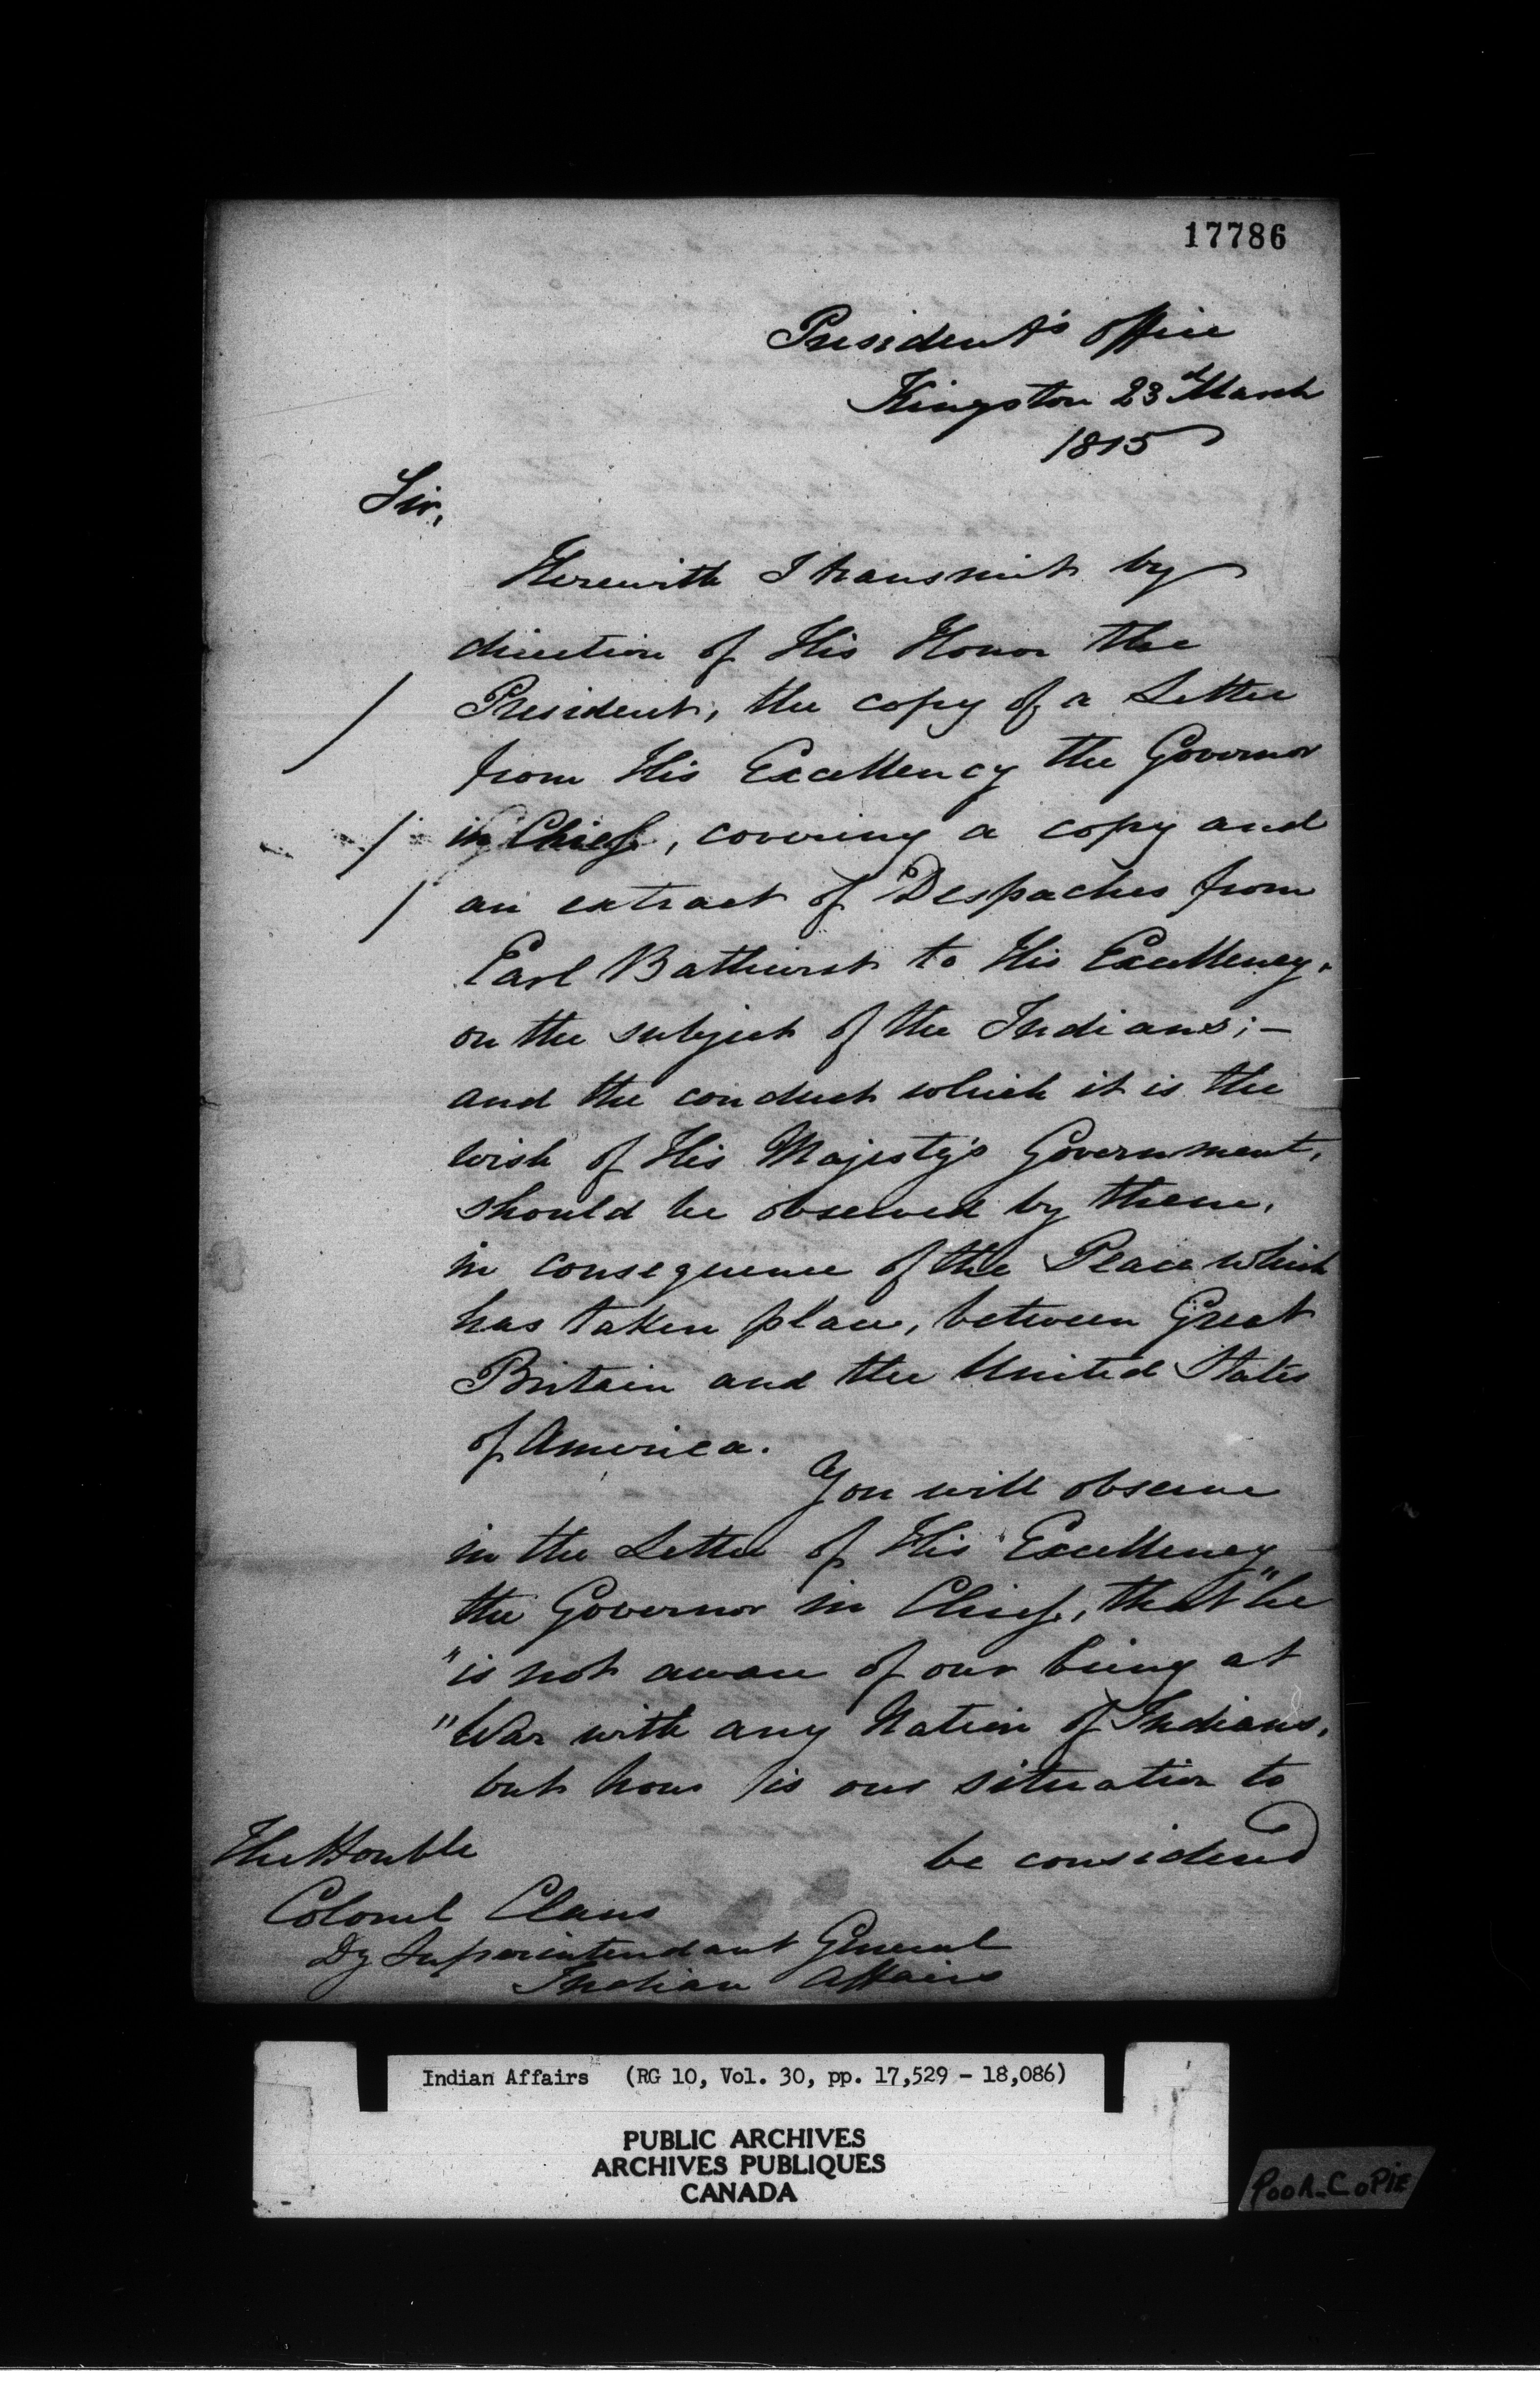 17786
President's Office
Kingston 23d March
1815
Sir,
Herewith I transmit by
direction of His Honor the
President, the copy of a Letter
from His Excellency the Governor
in Chief, covering a copy and
an extract of Despaches from
Earl Bathurst to His Excellency,
on the subject of the Indians; —
and the conduct which it is the
wish of His Majesty's Government,
should be observed by them,
in consequence of the Peace which
has taken place, between Great
Britain and the United States
of America.
You will observe
in the Letter of His Excellency
the Governor in Chief, that "he
"is not aware of our being at
"War with any Nation of Indians,
but how is our situation to
be considered
The Honble
Colonel Claus
Dy Superintendant General
Indian Affairs
Indian Affairs (RG 10, Vol. 30, pp. 17,529 - 18,086)
PUBLIC ARCHIVES
ARCHIVES PUBLIQUES
CANADA
POOR-COPIE